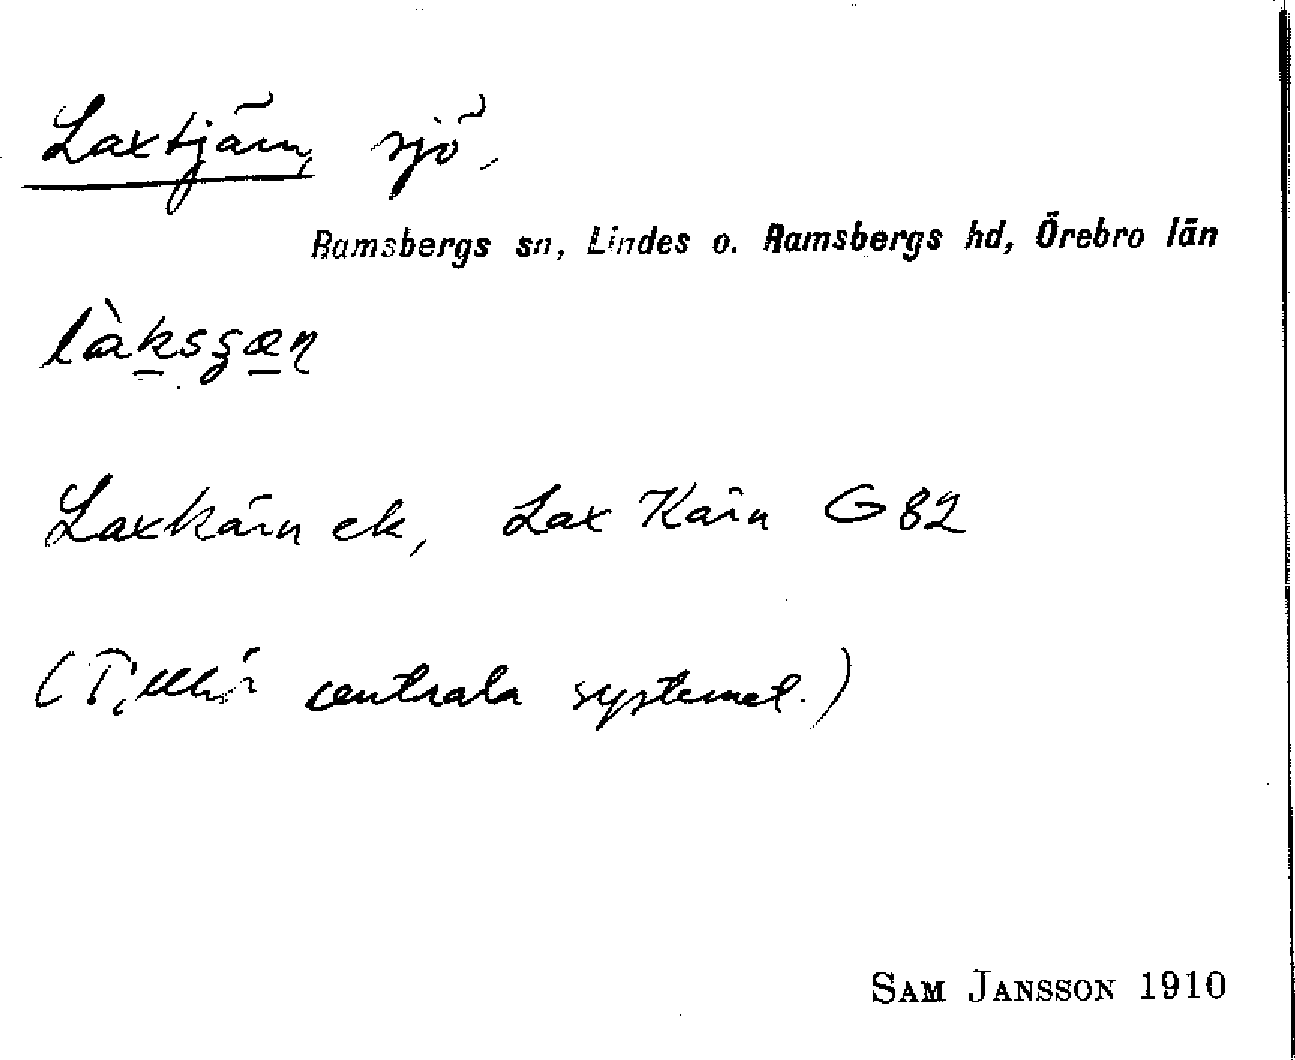 Laxtjärn, sjö,
Ramsbergs sn, Lindes o. Ramsbergs hd, Örebro län
làksʒæn
Laxkärn ek, Lax Kärn G82
(Tillhör centrala systemet.)
SAM JANSSON 1910